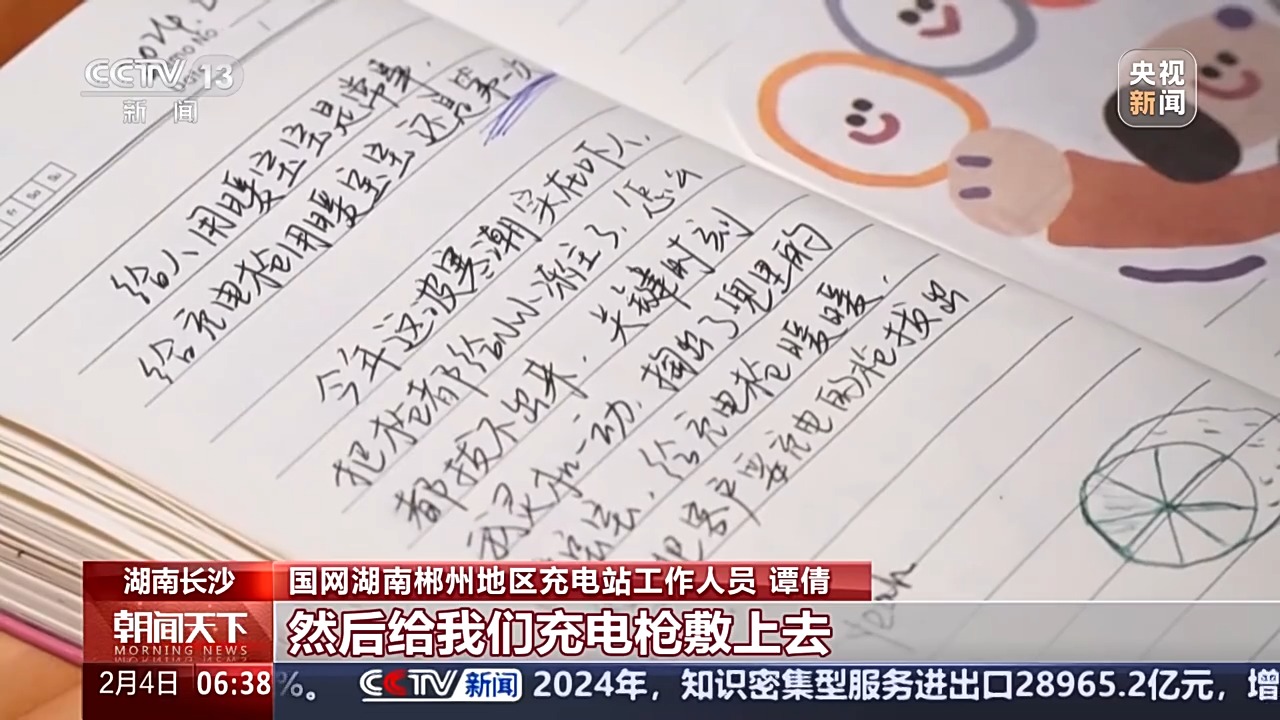 CCTV 13
新闻
央视
新闻
给人用暖宝宝是常事.
给充电枪用暖宝宝还是第一次
今年这波寒潮实在吓人.
把枪都给冰冻住了, 怎么
都拔不出来, 关键时刻
我灵机一动, 掏出了兜里的
暖宝宝, 给充电枪暖暖,
把客户要充电的枪拔出
Yeah
湖南长沙
国网湖南郴州地区充电站工作人员 谭倩
朝闻天下
MORNING NEWS
然后给我们充电枪敷上去
2月4日 06:38
%。 CCTV新闻 2024年，知识密集型服务进出口28965.2亿元，增